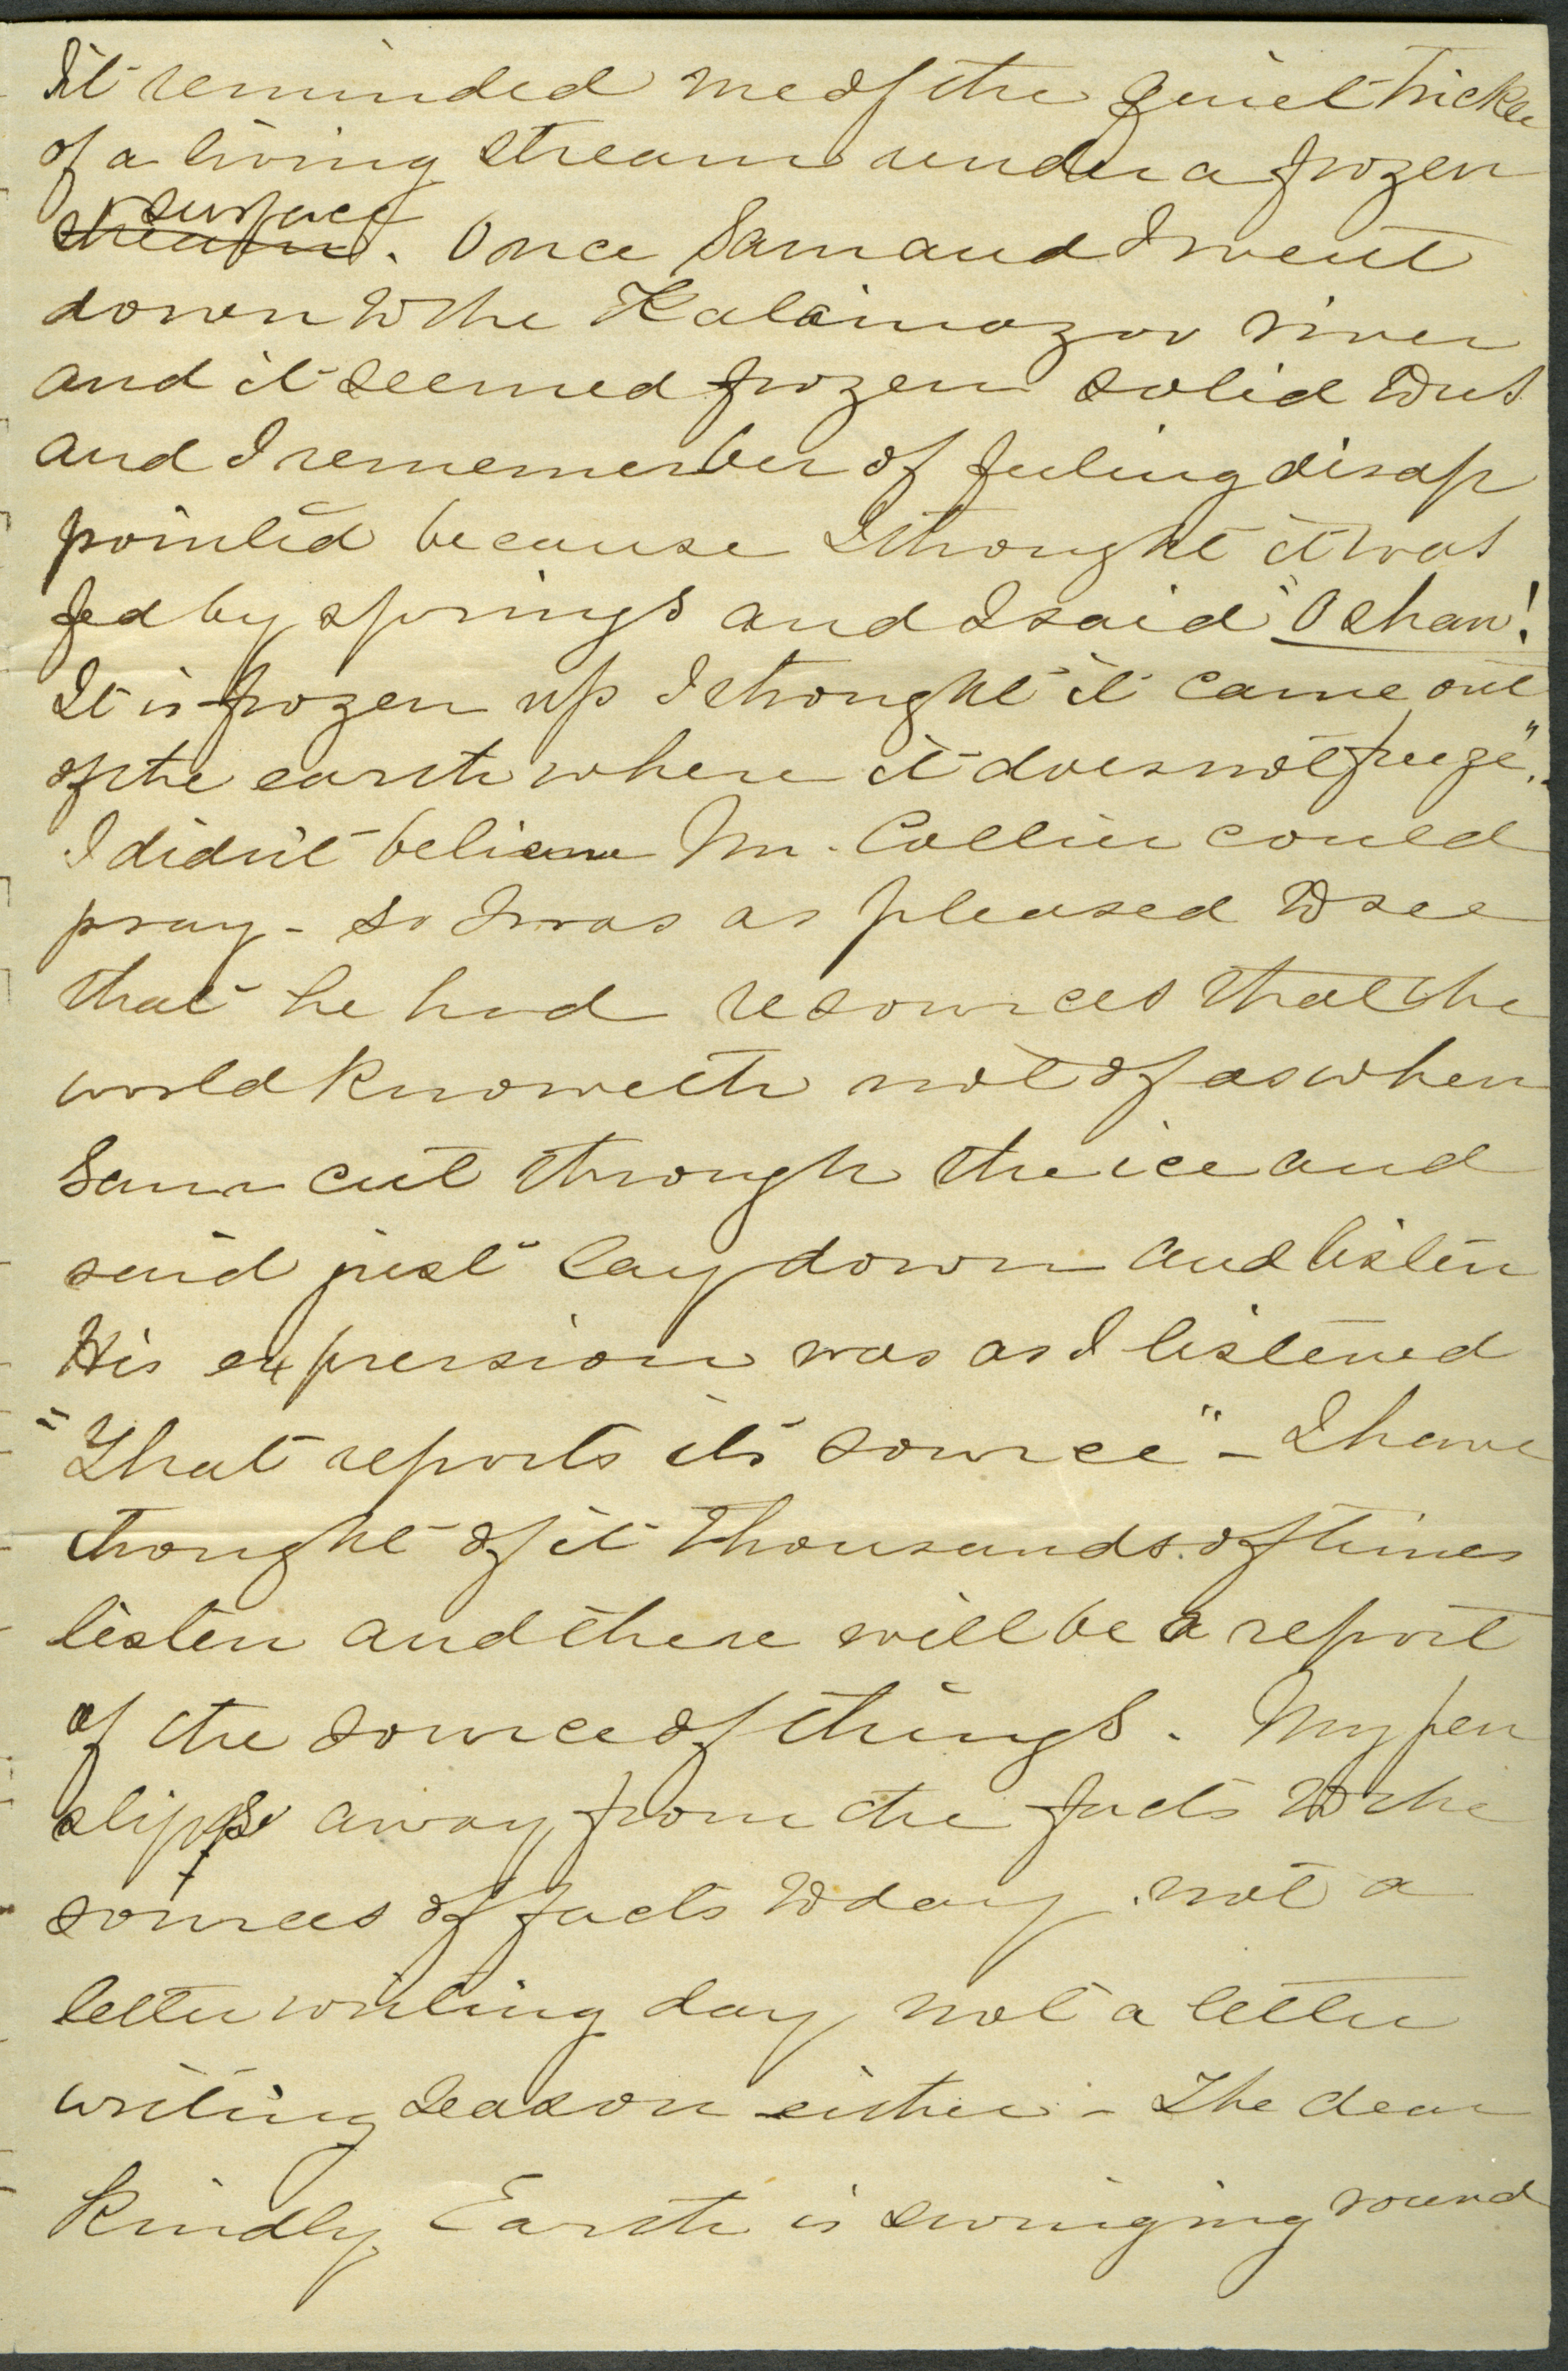 It reminded me of the quiet trickle
of a living stream under a frozen
surface
stream. Once Sam and I went
down to the Kalamazoo river
and it seemed frozen solid
and I rememember of feeling disap
pointed because I thought it was
fed by springs and I said "O shaw!
It is frozen up I thought it came out
of the earth where it does not freeze".
I didn't believe Mr. Collier could
pray - so I was as pleased to see
that he had resources that the
world knoweth not of as when
Sam cut through the ice and
said just lay down and listen
His expression was as I listened
"That reports its source" - I have
thought of it thousands of times
listen and there will be a report
of the source of things. My pen
slips away from the facts to the
sources of facts today. not a
letter writing day, not a letter
writing season either - The dear
kindly Earth is swinging round